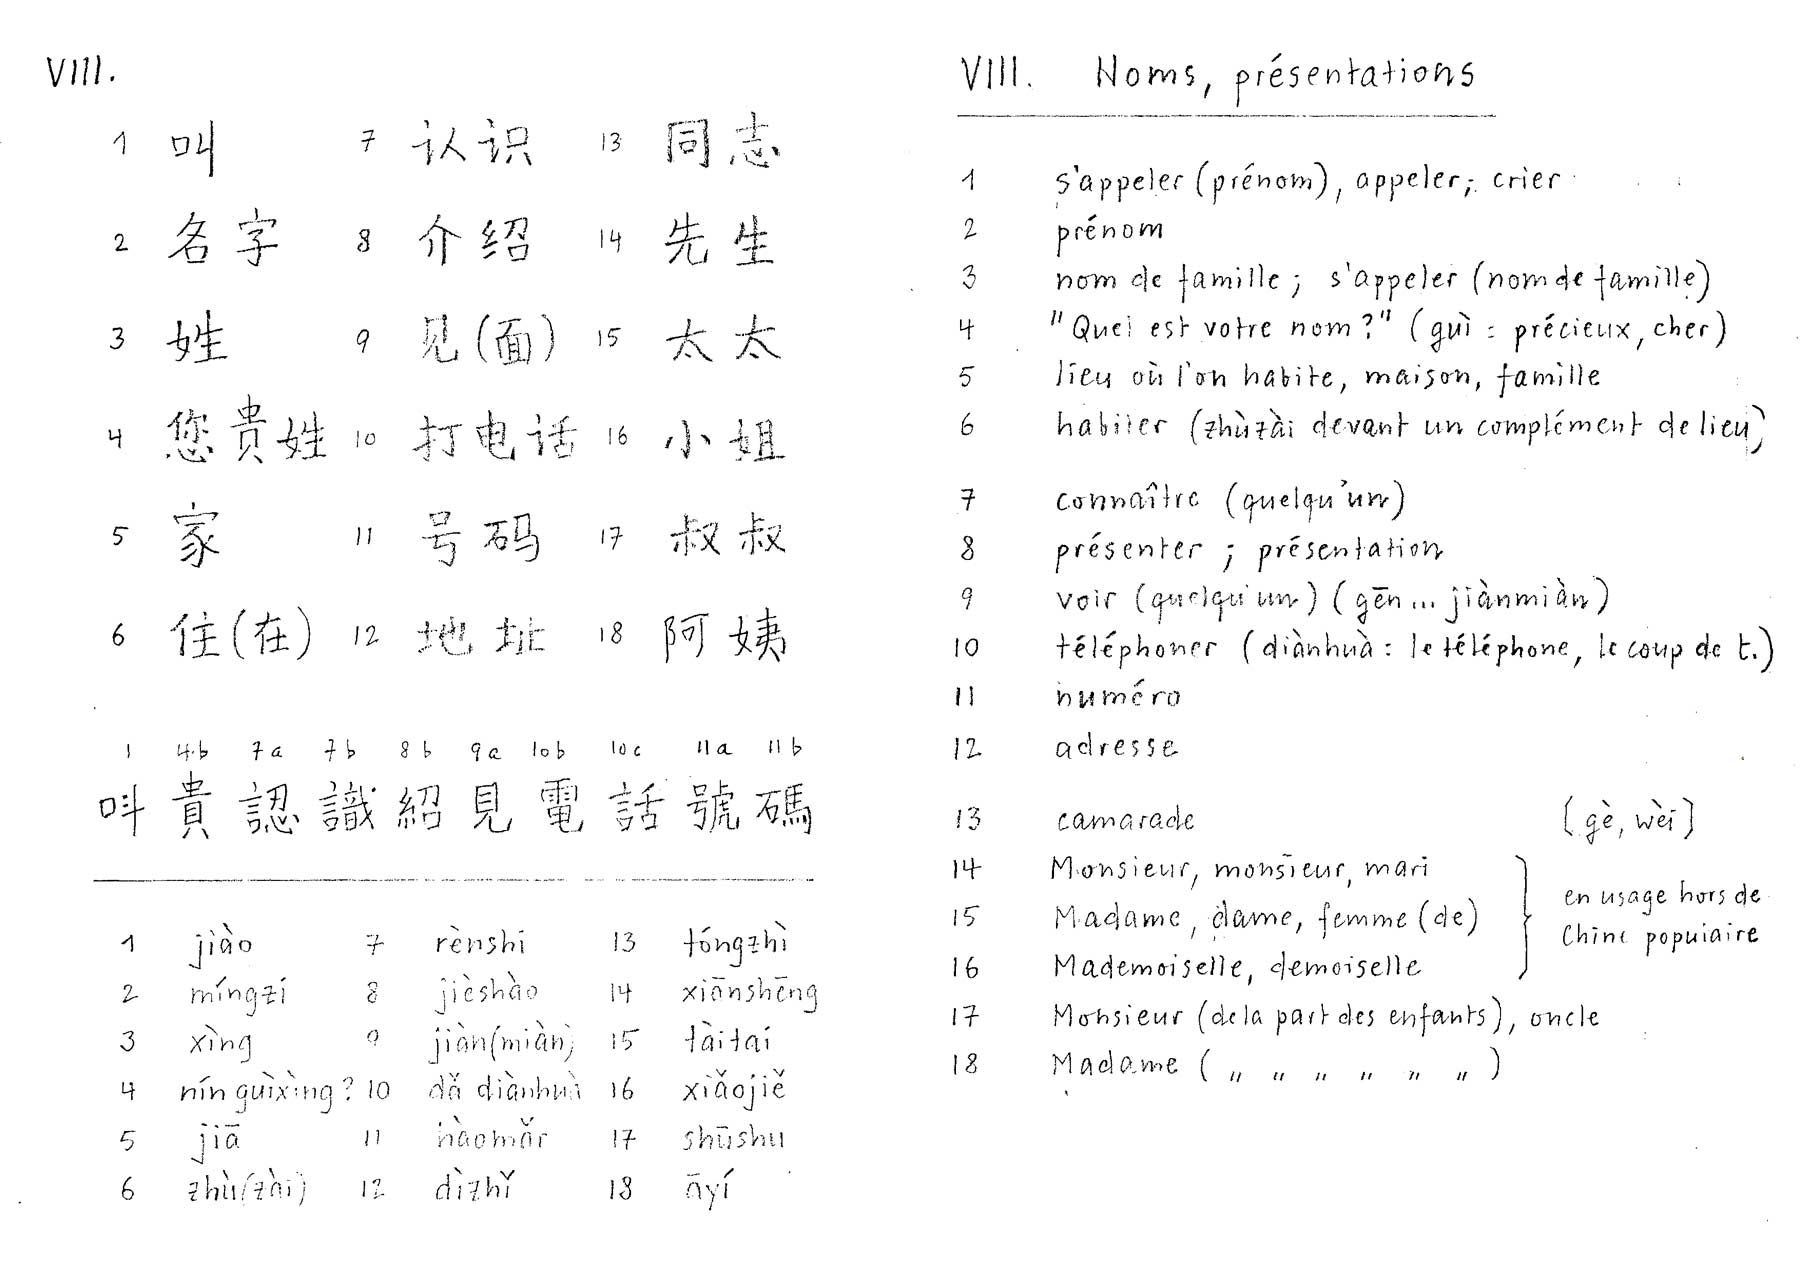 VIII.
1 叫 7 认识 13 同志
2 名字 8 介绍 14 先生
3 姓 9 见(面) 15 太太
4 您贵姓 10 打电话 16 小姐
5 家 11 号码 17 叔叔
6 住(在) 12 地址 18 阿姨
1 4b 7a 7b 8b 9a 10b 10c 11a 11b
呌 貴 認 識 紹 見 電 話 號 碼
1 jiào 7 rènshi 13 tóngzhì
2 míngzi 8 jièshào 14 xiānshēng
3 xìng 9 jiàn(miàn) 15 tàitai
4 nín guìxìng? 10 dǎ diànhuà 16 xiǎojiě
5 jiā 11 hàomǎr 17 shūshu
6 zhù(zài) 12 dìzhǐ 18 āyí
VIII. Noms, présentations
1 s'appeler (prénom), appeler; crier
2 prénom
3 nom de famille; s'appeler (nom de famille)
4 "Quel est votre nom?" (guì : précieux, cher)
5 lieu où l'on habite, maison, famille
6 habiter (zhùzài devant un complément de lieu)
7 connaître (quelqu'un)
8 présenter ; présentation
9 voir (quelqu'un) (gēn... jiànmiàn)
10 téléphoner (diànhuà : le téléphone, le coup de t.)
11 numéro
12 adresse
13 camarade (gè, wèi)
14 Monsieur, monsieur, mari
15 Madame, dame, femme (de)
16 Mademoiselle, demoiselle
en usage hors de
Chine populaire
17 Monsieur (de la part des enfants), oncle
18 Madame ( " " " " " " )